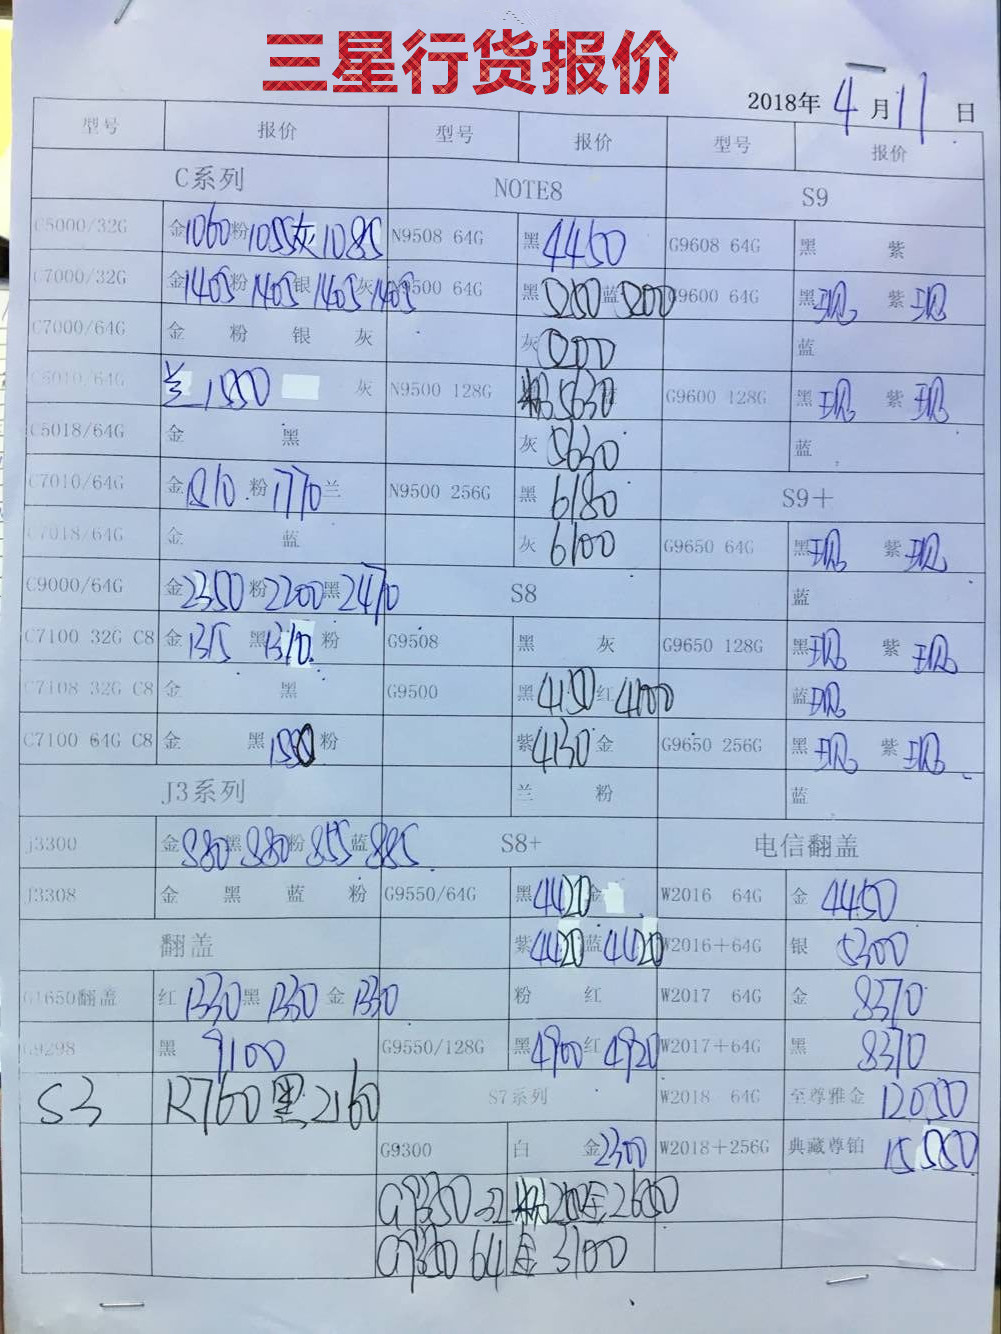 三星行货报价
2018年4月11日
型号 报价 型号 报价 型号 报价
C系列 NOTE8 S9
C5000/32G 金1060粉1055灰1085 N9508 64G 黑4450 G9608 64G 黑 紫
C7000/32G 金1405粉1405银1405灰1405 N9500 64G 黑5200蓝5200 G9600 64G 黑现 紫现
C7000/64G 金 粉 银 灰 灰5200 蓝
C5010/64G 兰1550 灰 N9500 128G 粉5630 G9600 128G 黑现 紫现
C5018/64G 金 黑 灰5630 蓝
C7010/64G 金1810粉1770兰 N9500 256G 黑6180 S9＋
C7018/64G 金 蓝 灰6100 G9650 64G 黑现 紫现
C9000/64G 金2350粉2200黑2470 S8 蓝
C7100 32G C8 金1315 黑1310 粉 G9508 黑 灰 G9650 128G 黑现 紫现
C7108 32G C8 金 黑 G9500 黑4150红4100 蓝现
C7100 64G C8 金 黑 粉 紫4130金 G9650 256G 黑现 紫现
J3系列 兰 粉 蓝
j3300 金880黑880粉855蓝885 S8+ 电信翻盖
J3308 金 黑 蓝 粉 G9550/64G 黑4420金 W2016 64G 金4450
翻盖 紫4420蓝4420 W2016+64G 银5300
G1650翻盖 红1330黑1330金1330 粉 红 W2017 64G 金8370
G9298 黑9100 G9550/128G 黑4900红4920 W2017+64G 黑8370
S3 R760黑2160 S7系列 W2018 64G 至尊雅金12050
G9300 白 金2300 W2018+256G 典藏尊铂15550
G9350 32 粉 金2600
G9350 64 金3100